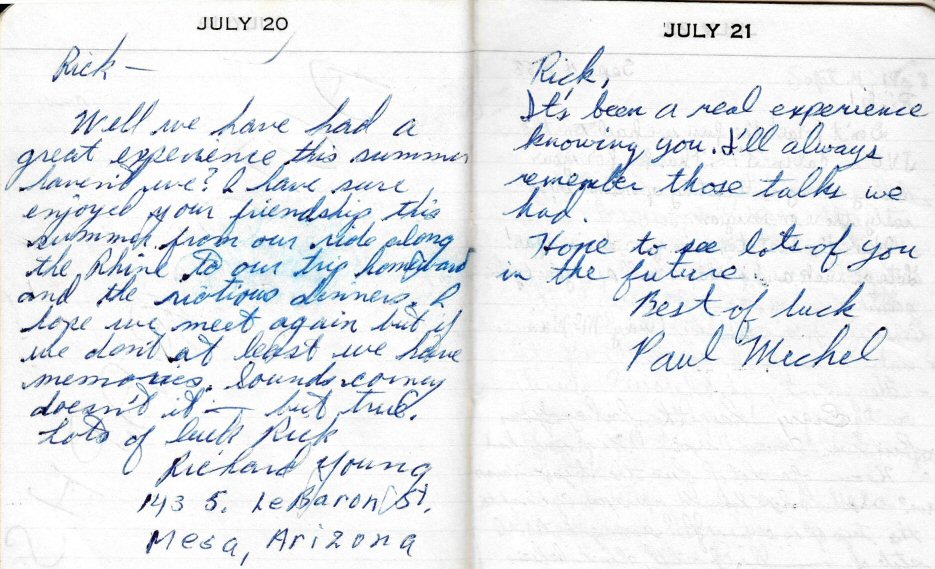 JULY 20
Rick —
Well we have had a
great experience this summer
haven't we? I have sure
enjoyed your friendship this
summer from our ride along
the Rhine to our trip homeward
and the riotious dinners. I
hope we meet again but if
we don't at least we have
memories. Sounds corney
doesn't it — but true.
Lots of luck Rick
Richard Young
143 S. LeBaron St.
Mesa, Arizona
JULY 21
Rick,
It's been a real experience
knowing you. I'll always
remember those talks we
had.
Hope to see lots of you
in the future.
Best of luck
Paul Mechel